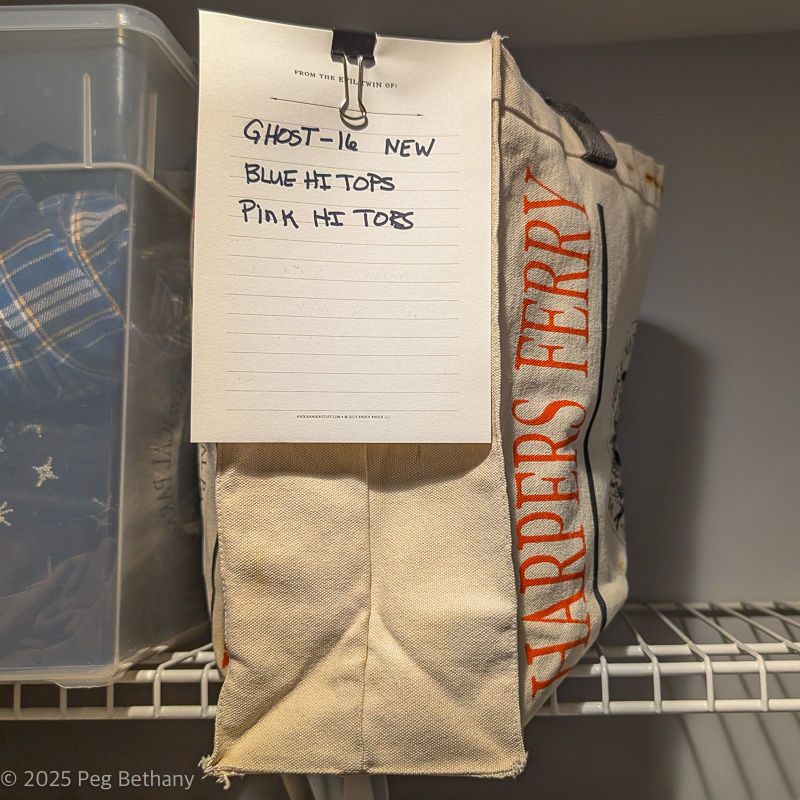 FROM THE EVIL TWIN OF:
GHOST-16 NEW
BLUE HI TOPS
PINK HI TOPS
KNOCKKNOCKSTUFF.COM • © 2015 KNOCK KNOCK LLC
HARPERS FERRY
© 2025 Peg Bethany